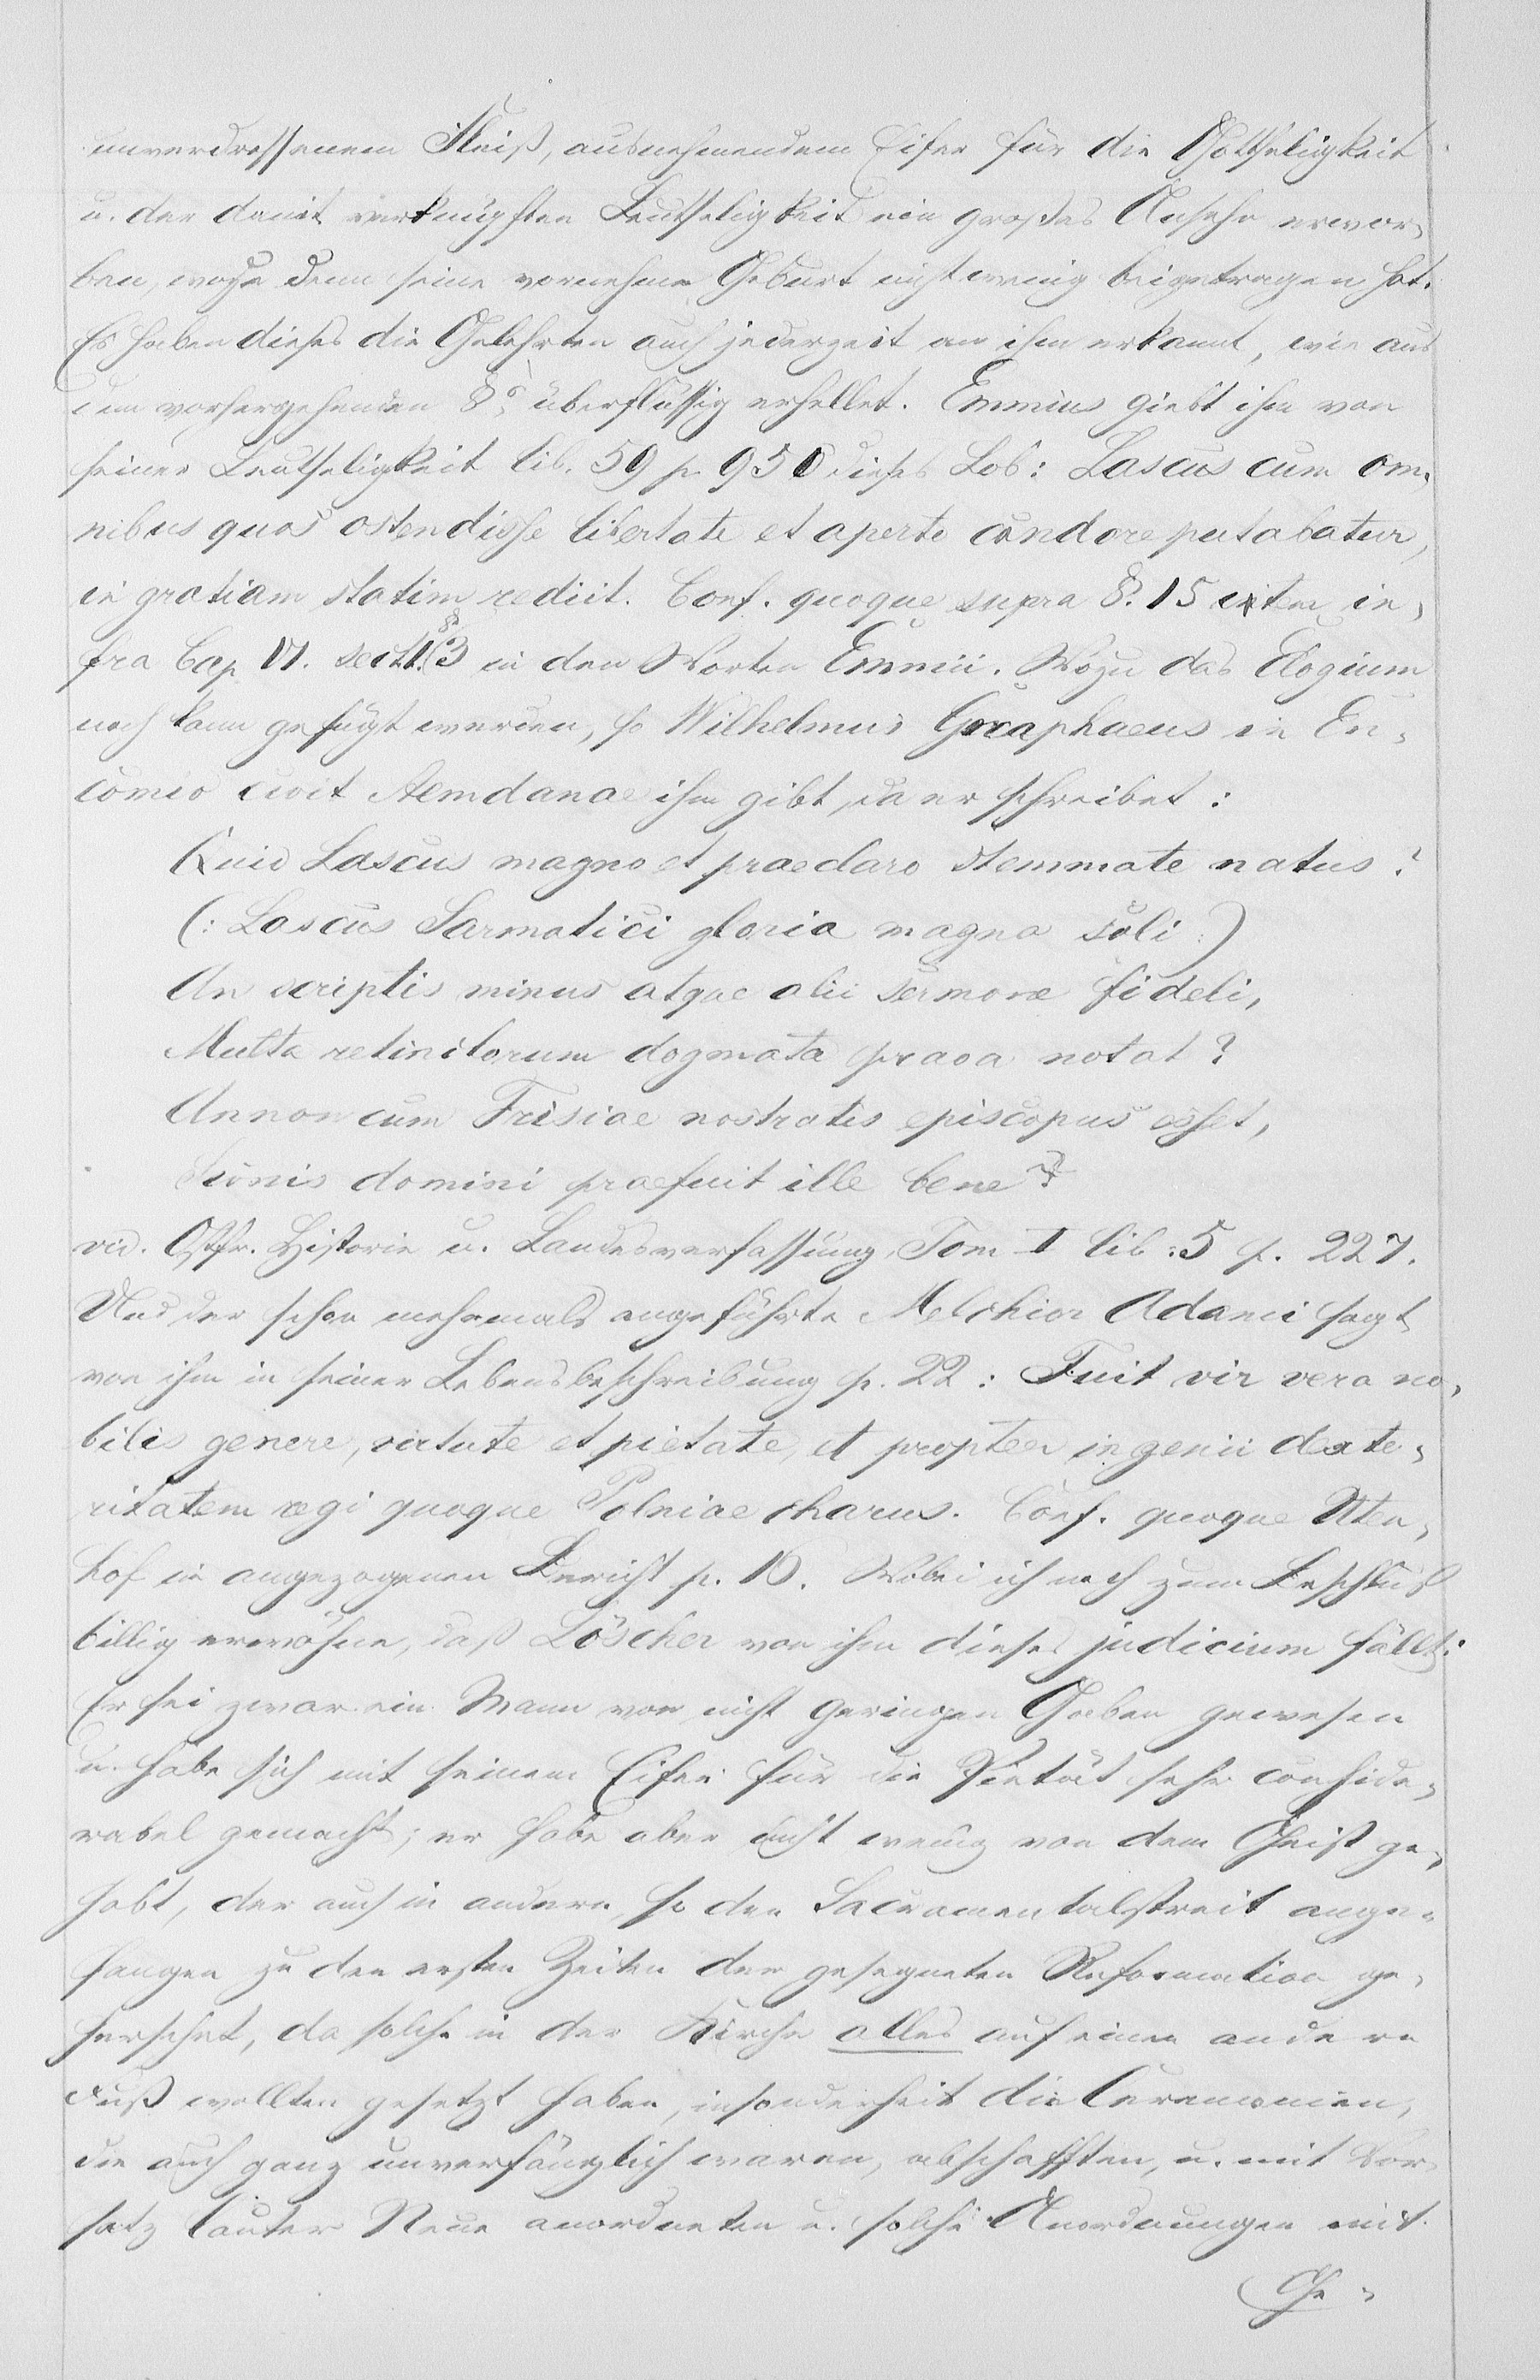 unverdrossenem Fleiß, ausnehmendem Eifer für die Gottseligkeit
u. der damit verknüpften Leutseligkeit ein großes Ansehn erwor-
ben, wozu denn seine vornehme Geburt nicht wenig beigetragen hat.
Es haben dieses die Gelehrten auch jederzeit an ihm erkannt, wie aus
dem vorhergehenden § überflüssig erhellet. Emmius giebt ihm von
seiner Leutseligkeit lib. 59 p. 950 dieses Lob: Lascus cum om-
nibus quos ostendisse libertate et aperto candore putabatur,
in gratiam statim rediit. Conf. quoque supra §. 15 item in-
fra Cap VI. sect. 1. § 3 in den Worten Emmii. Wozu das Elogium
noch kann gefügt werden, so Wilhelmus Gnaphaeus in En-
comio civit Aemdanae ihm gibt, da er schreibet:
Quid Lascus magno et praeclaro stemmate natus?
(: Lascus Sarmatici gloria magna soli :)
An scriptis minus atque alii sermone fideli,
Multa retinctorum dogmata prava notat?
Annon cum Frisiae nostratis episcopus esset,
domini praefuit ille bene?
vid. Ostfr. Historie u. Landesverfassung, Tom I lib: 5 p. 227.
Und der schon mehrmals angeführte Melchior Adami sagt
von ihm in seiner Lebensbeschreibung p. 22: Fuit vir vera no-
bilis genere, virtute et pietate, et propter ingenii dexte-
ritatem regi quoque Polniae charus. Conf. quoque Uten-
hof in angezogenen Bericht p. 16. Wobei ich noch zum Beschluß
billig erwähne, daß Löscher von ihm dieses judicium fällt:
Er sei zwar ein Mann von nicht geringen Gaben gewesen
u. habe sich mit seinem Eifer für die Pietät sehr conside-
rabel gemacht; er habe aber nicht wenig von dem Geist ge-
habt, der auch in andern, so den Sacramentalstreit ange-
fangen zu den ersten Zeiten der gesegneten Reformation ge-
herrschet, da solche in der Kirche alles auf einen andern
Fuß wollten gesetzt haben, insonderheit die Ceremonien,
die auch ganz unverfänglich waren, abschafften, u. mit Vor-
satz lauter Neue anordneten u. solche Anordnungen mit
Ge-